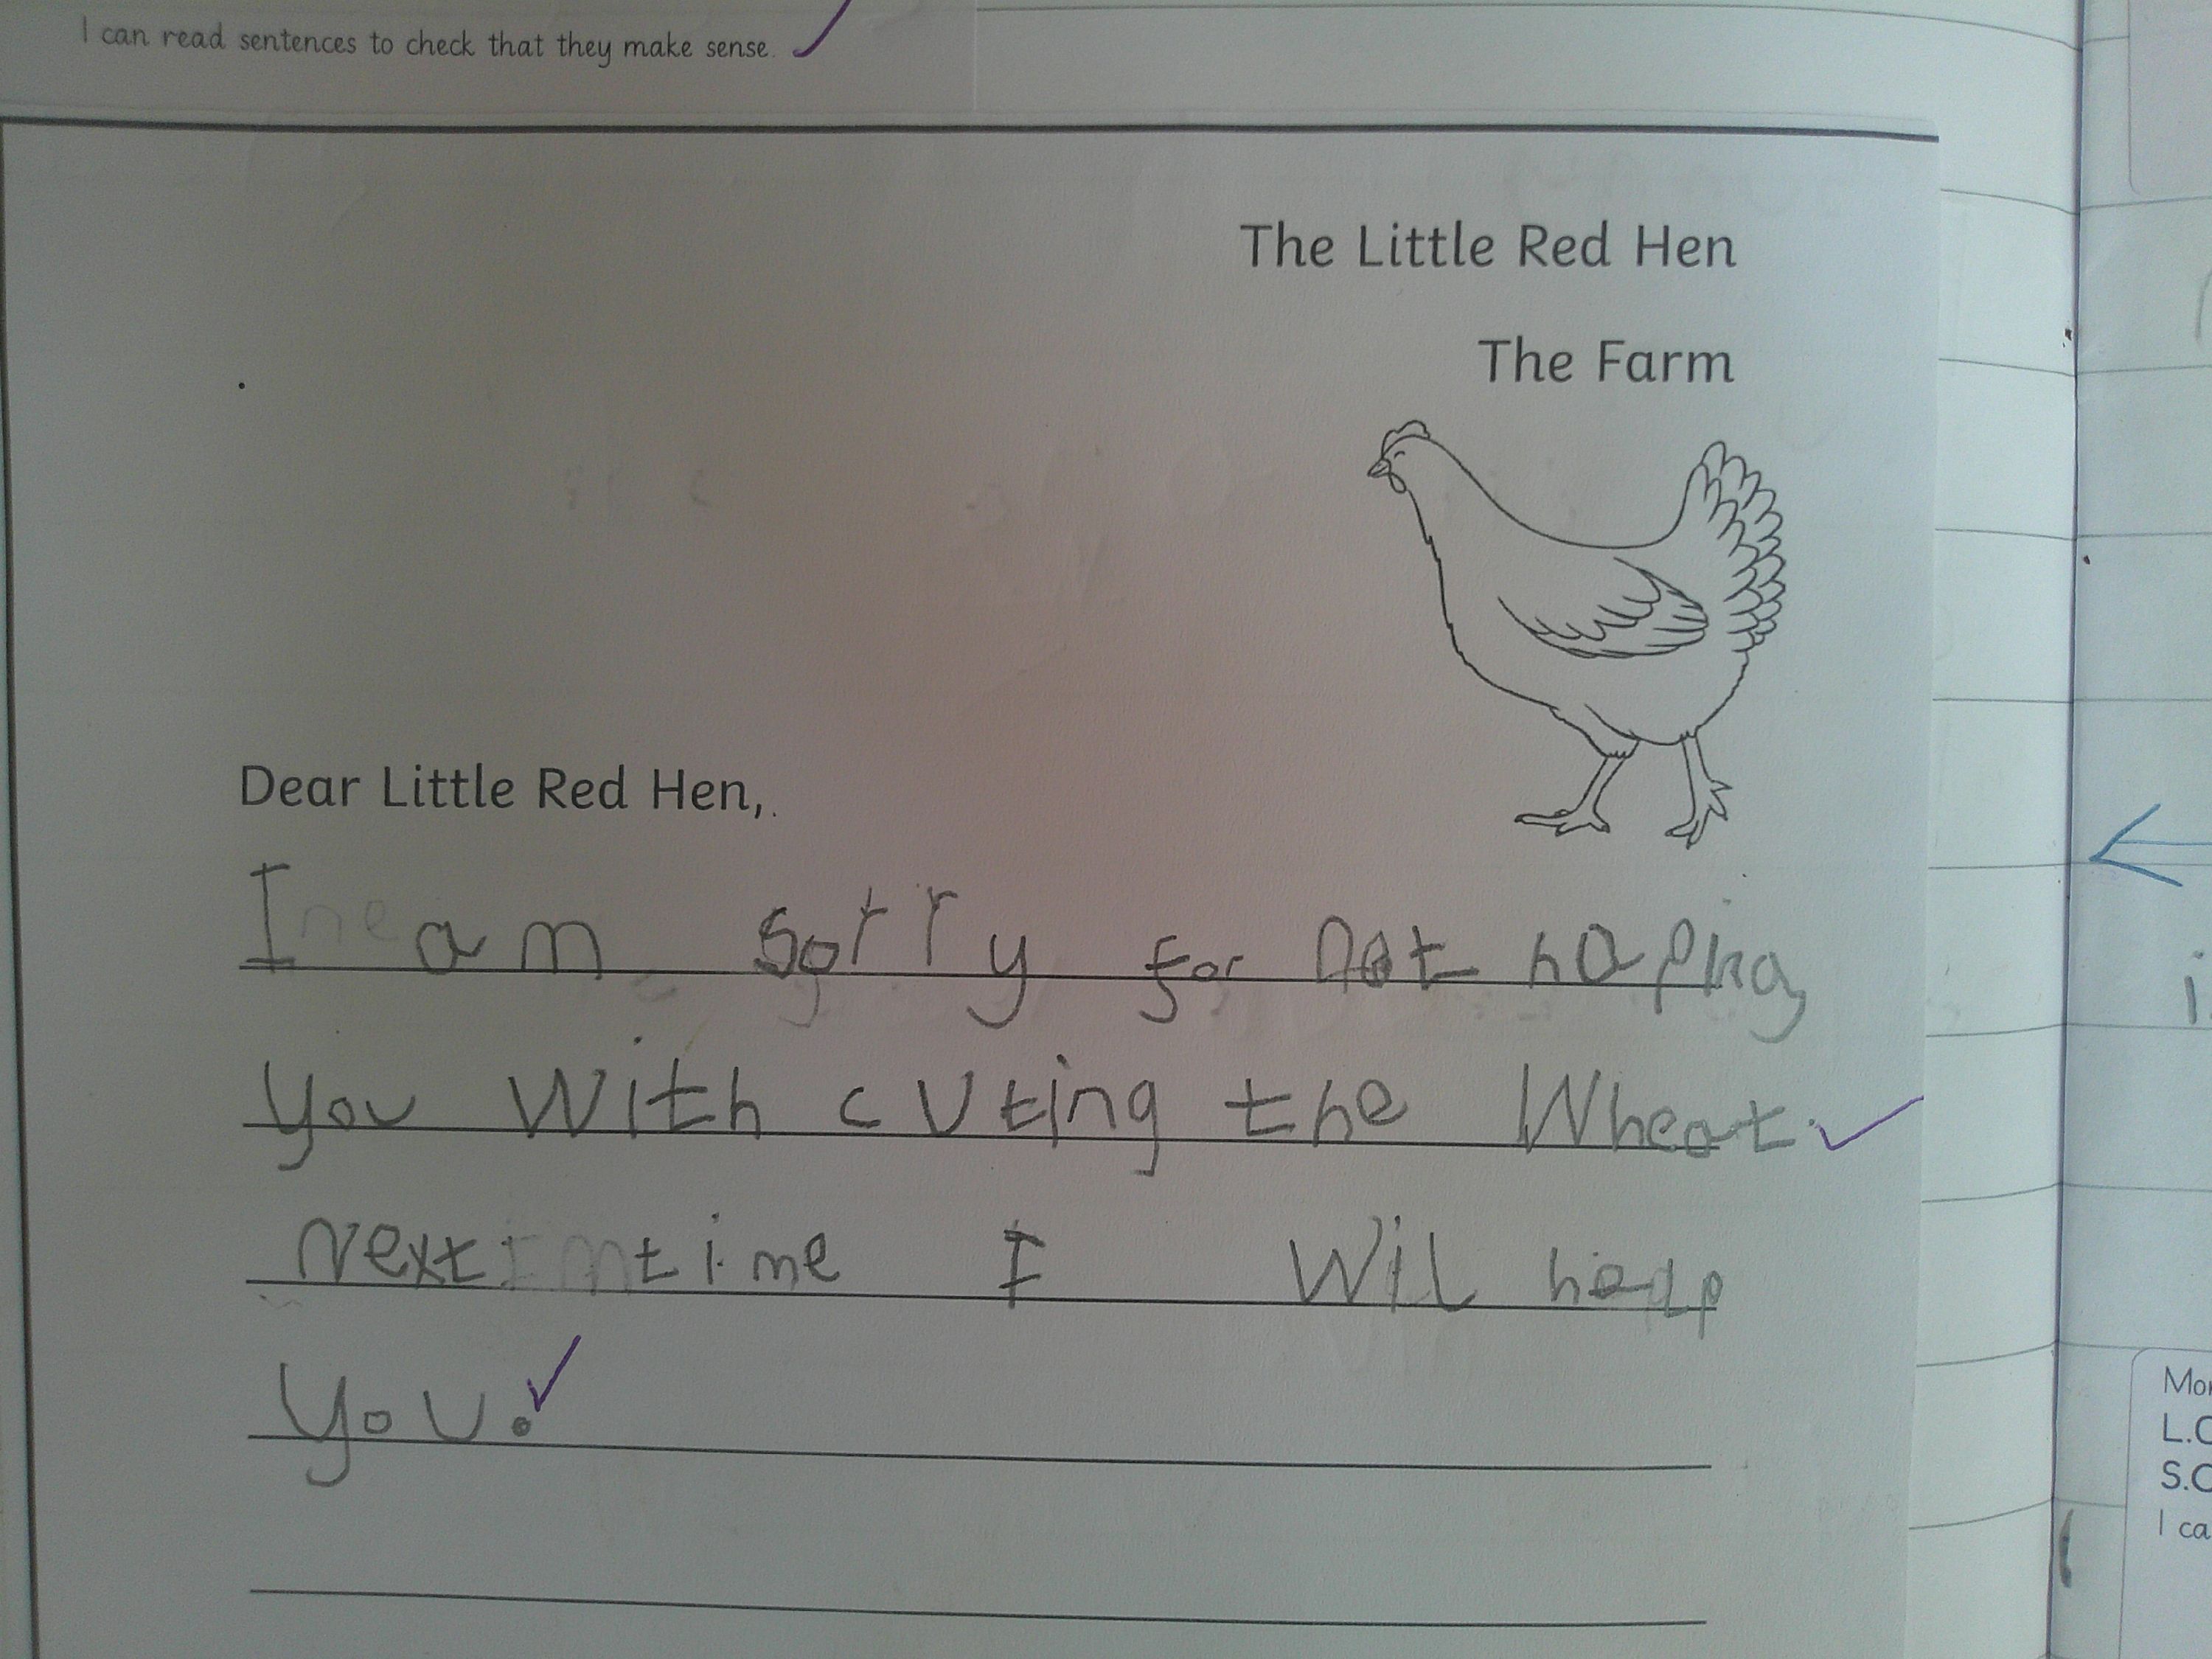 I can read sentences to check that they make sense.
The Little Red Hen
The Farm
Dear Little Red Hen,
I am sorry for not haping
you With cuting the Wheat.
Next time I Wil help
you.
i
Mo
L.C
S.C
I ca